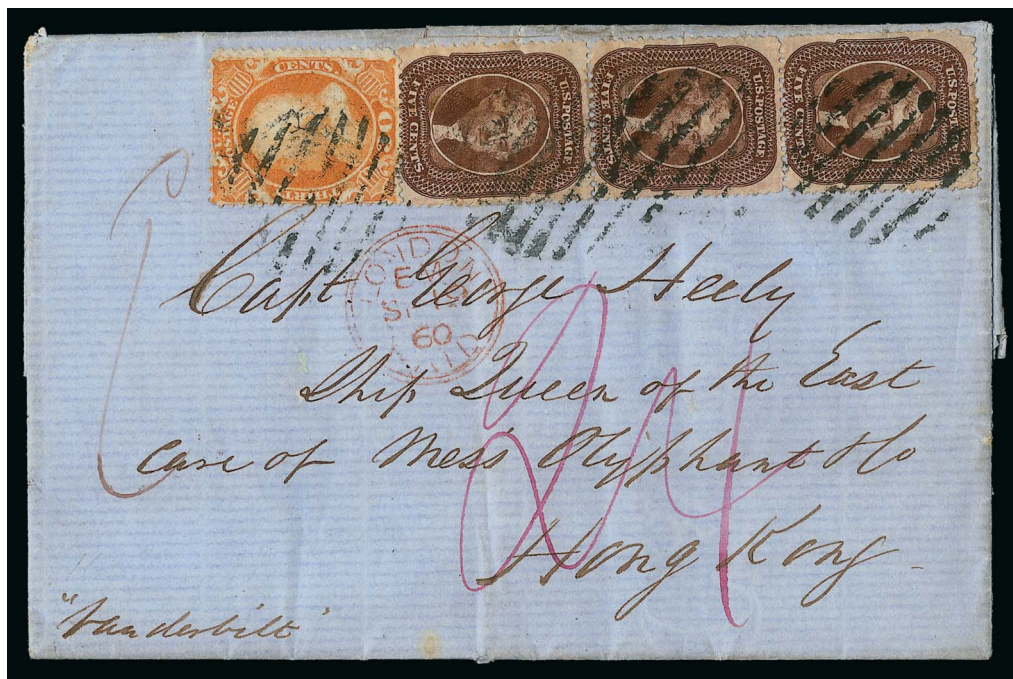 CENTS
POSTAGE
THIRTY
U.S. POSTAGE
FIVE CENTS
U.S. POSTAGE
FIVE CENTS
U.S. POSTAGE
FIVE CENTS
LONDON
60
PAID
Capt George Heely
Ship Queen of the East
care of Mess Olyphant & Co
Hong Kong
24
"Vanderbilt"